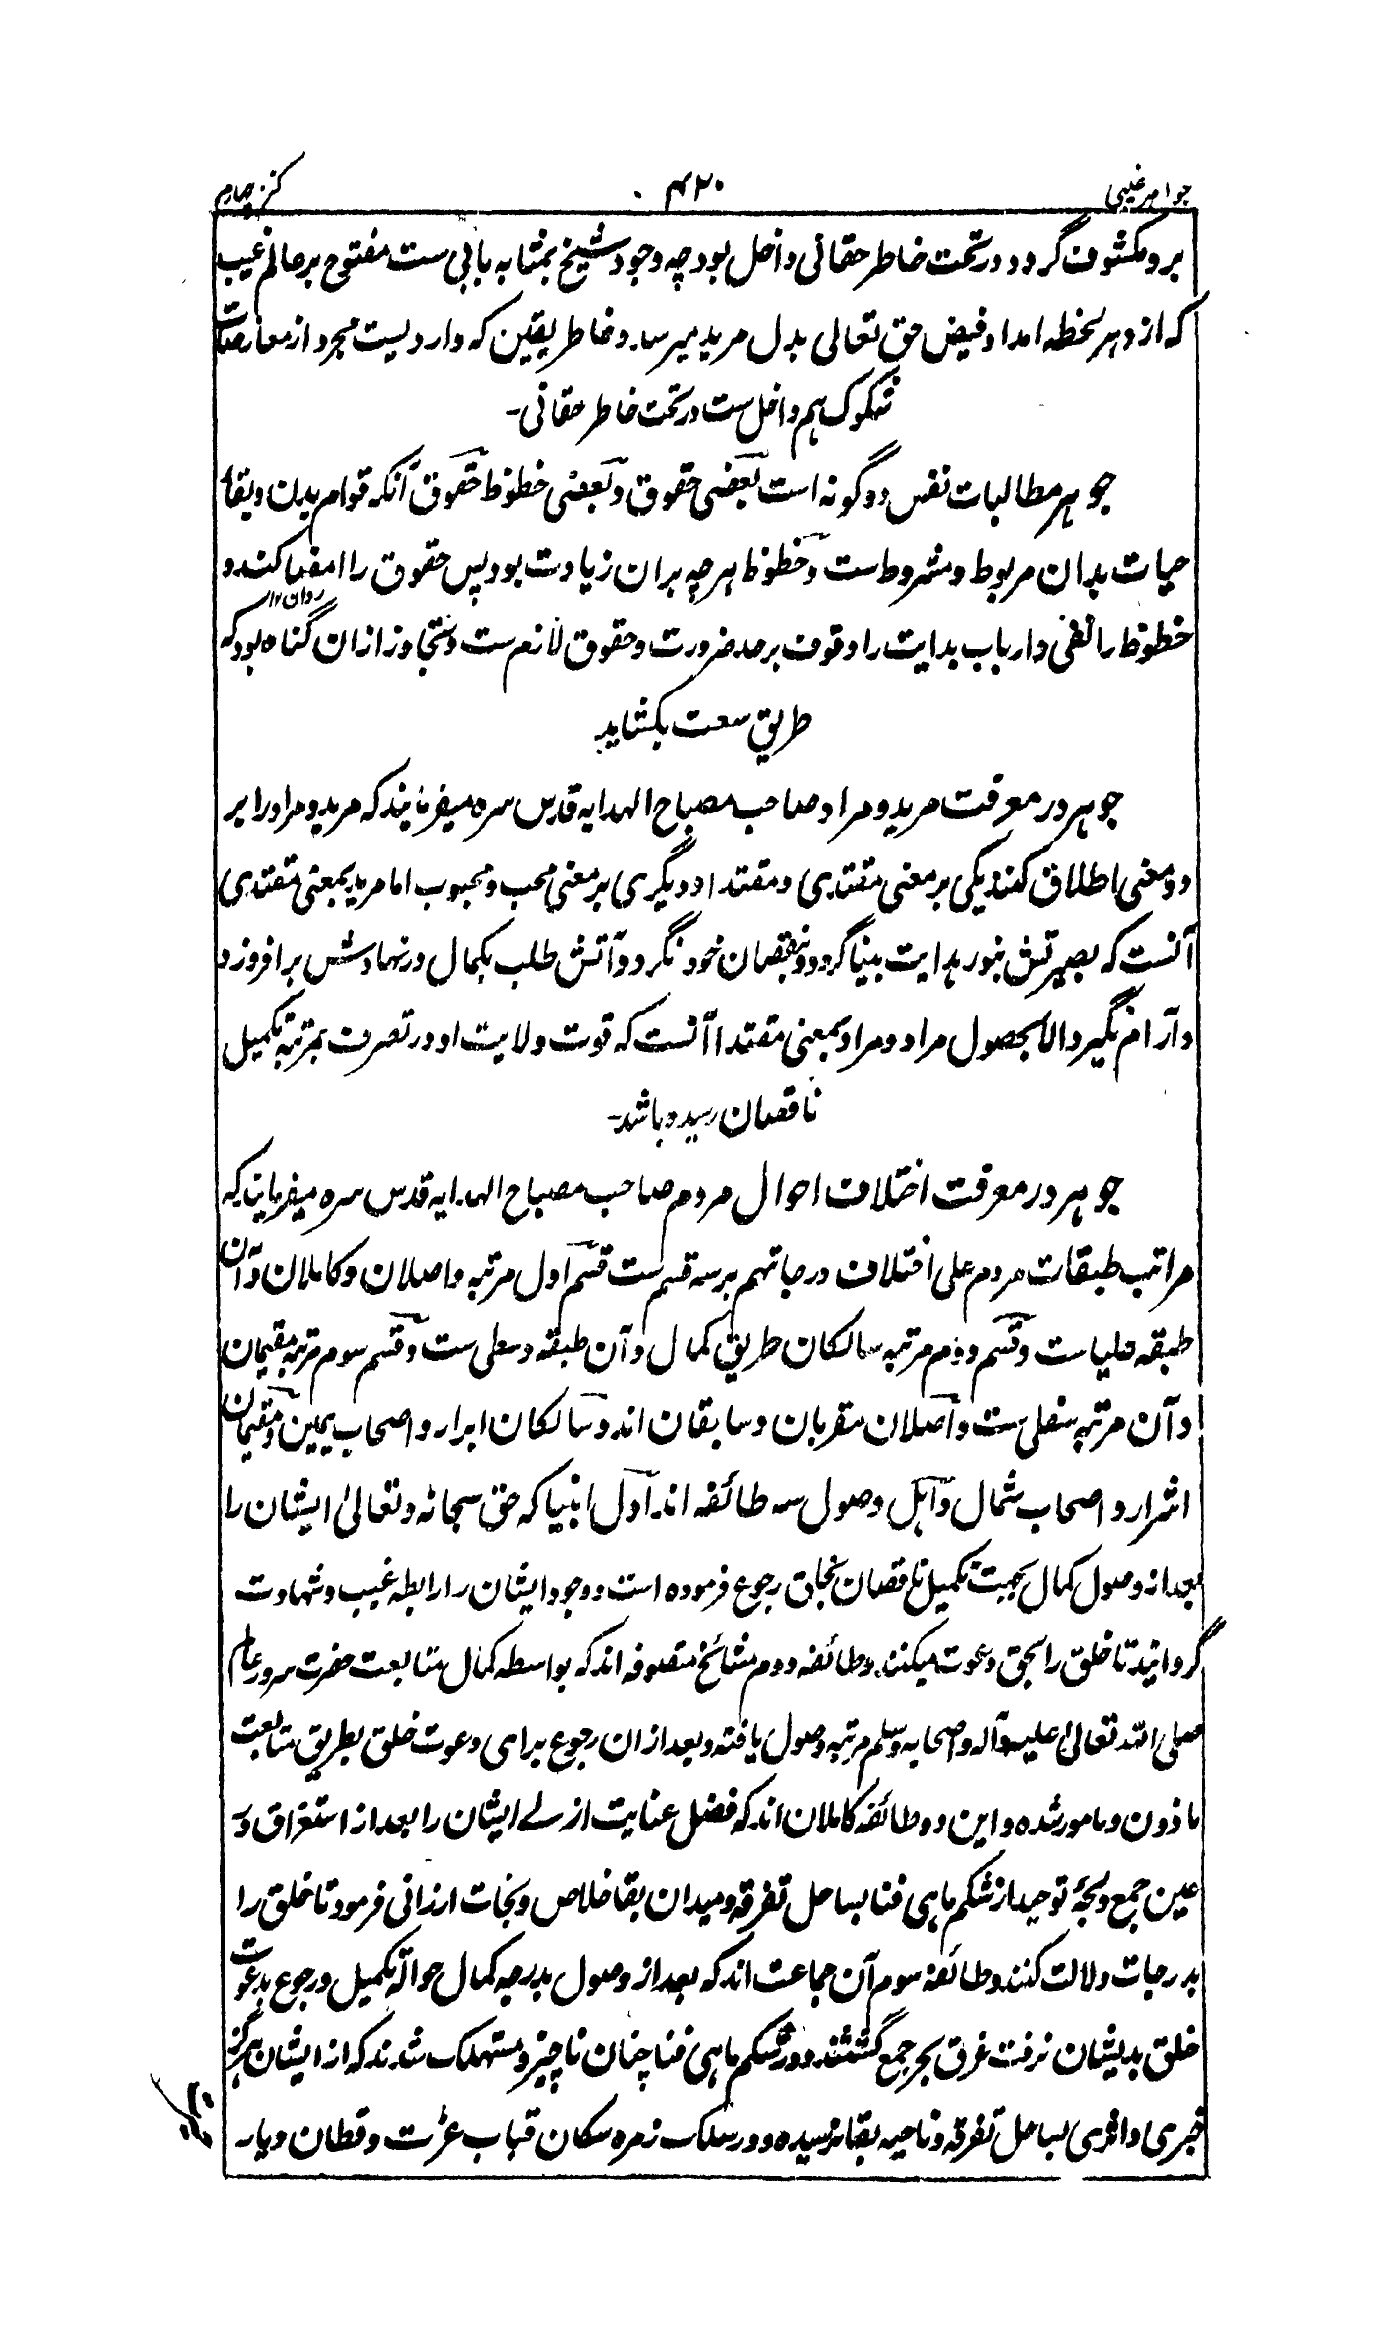 جواهر غیبی
۴۲۰
کنز چهارم
برو مکشوف گردد در تحت خاطر حقانی داخل بود چه وجود شیخ بمثابه بابی ست مفتوح بر عالم غیب
که ازو هر لحظه امداد فیض حق تعالی بدل مرید میرسد و خاطر یقین که واردیست مجرد از معارضات
شکوک هم داخل ست در تحت خاطر حقانی-
جوهر مطالبات نفس دو گونه است بعضی حقوق و بعضی حظوظ حقوق آنکه قوام بدن و بقاء
حیات بدان مربوط و مشروط ست و حظوظ هر چه بران زیادت بود پس حقوق را امضا کند و
حظوظ را نفی و ارباب بدایت را وقوف بر حد ضرورت و حقوق لازم ست و تجاوز ازان گناه بود که
طریق سعت بکشاید
جوهر در معرفت مرید و مراد صاحب مصباح الهدایه قدس سره میفرمایند که مرید و مراد را بر
دو معنی اطلاق کنند یکی بر معنی مقتدی و مقتدا و دیگری بر معنی محب و محبوب اما مرید بمعنی مقتدی
آنست که بصیرتش بنور هدایت بینا گردد و بنقصان خود نگرد و آتش طلب بکمال در نهادش برافروزد
و آرام نگیرد الا بحصول مراد و مراد بمعنی مقتدا آنست که قوت ولایت او در تصرف بمرتبه تکمیل
ناقصان رسیده باشد-
جوهر در معرفت اختلاف احوال مردم صاحب مصباح الهدایه قدس سره میفرمایند که
مراتب طبقات مردم علی اختلاف درجاتهم بر سه قسم ست قسم اول مرتبه واصلان و کاملان و آن
طبقه علیاست و قسم دوم مرتبه سالکان طریق کمال و آن طبقه وسطی ست و قسم سوم مرتبه مقیمان
و آن مرتبه سفلی ست و واصلان مقربان و سابقان اند و سالکان ابرار و اصحاب یمین و مقیمان
اشرار و اصحاب شمال و اهل وصول سه طائفه اند اول انبیا که حق سبحانه و تعالیٰ ایشان را
بعد از وصول کمال بجهت تکمیل ناقصان بخلق رجوع فرموده است و وجود ایشان را رابطه غیب و شهادت
گردانید تا خلق را بحق دعوت میکنند و طائفه دوم مشائخ متصوفه اند که بواسطه کمال متابعت حضرت سرور عالم
صلی الله تعالیٰ علیه و آله و اصحابه وسلم مرتبه وصول یافته و بعد ازان رجوع برای دعوت خلق بطریق متابعت
ماذون و مامور شده و این دو طائفه کاملان اند که فضل عنایت ازلے ایشان را بعد از استغراق در
عین جمع و لجۀ توحید از شکم ماهی فنا بساحل تفرقه و میدان بقا خلاص و نجات ارزانی فرمود تا خلق را
بدرجات دلالت کنند و طائفه سوم آن جماعت اند که بعد از وصول بدرجه کمال حواله تکمیل و رجوع بدعوت
خلق بدیشان نرفت غرق بحر جمع گشتند و در شکم ماهی فنا چنان ناچیز و مستهلک شدند که از ایشان هرگز
خبری و اثری بساحل تفرقه و ناحیه بقا نرسیده و در سلک زمره سکان قباب عزت و قطان دیار